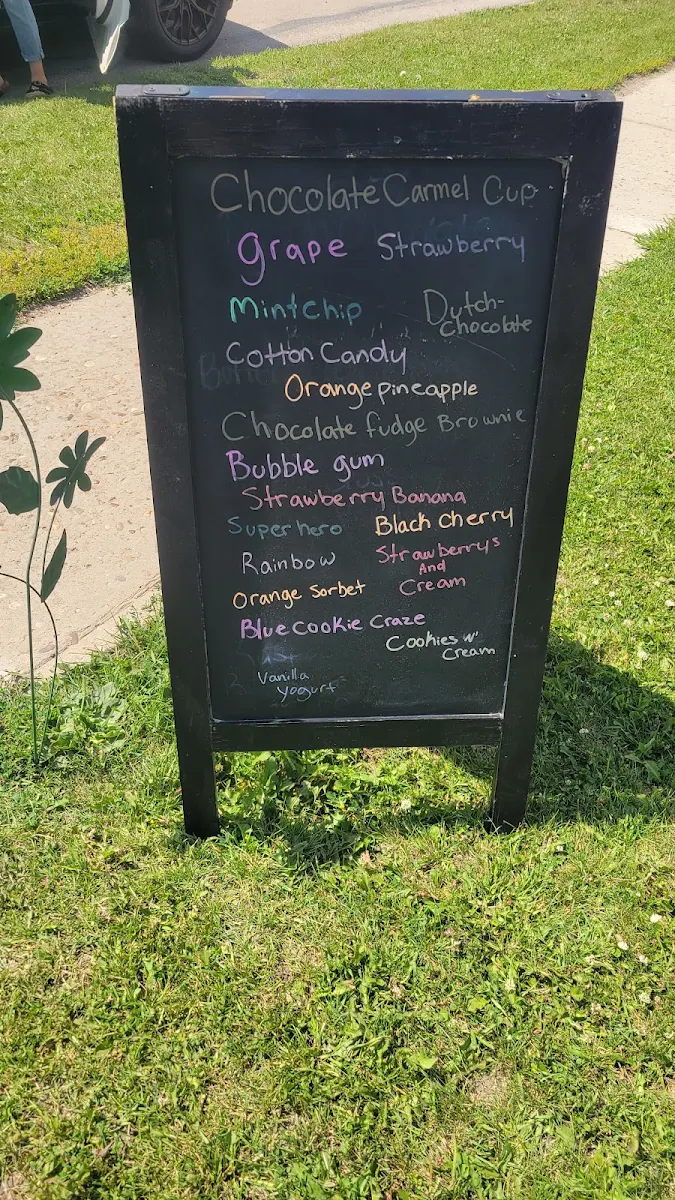 Chocolate Carmel Cup
grape Strawberry
Mintchip Dutch-
Chocolate
Cotton Candy
Orange pineapple
Chocolate fudge Brownie
Bubble gum
Strawberry Banana
Super hero Black Cherry
Rainbow Strawberry's
And
Cream
Orange Sorbet
Blue Cookie Craze
Cookies n'
Cream
Vanilla
yogurt